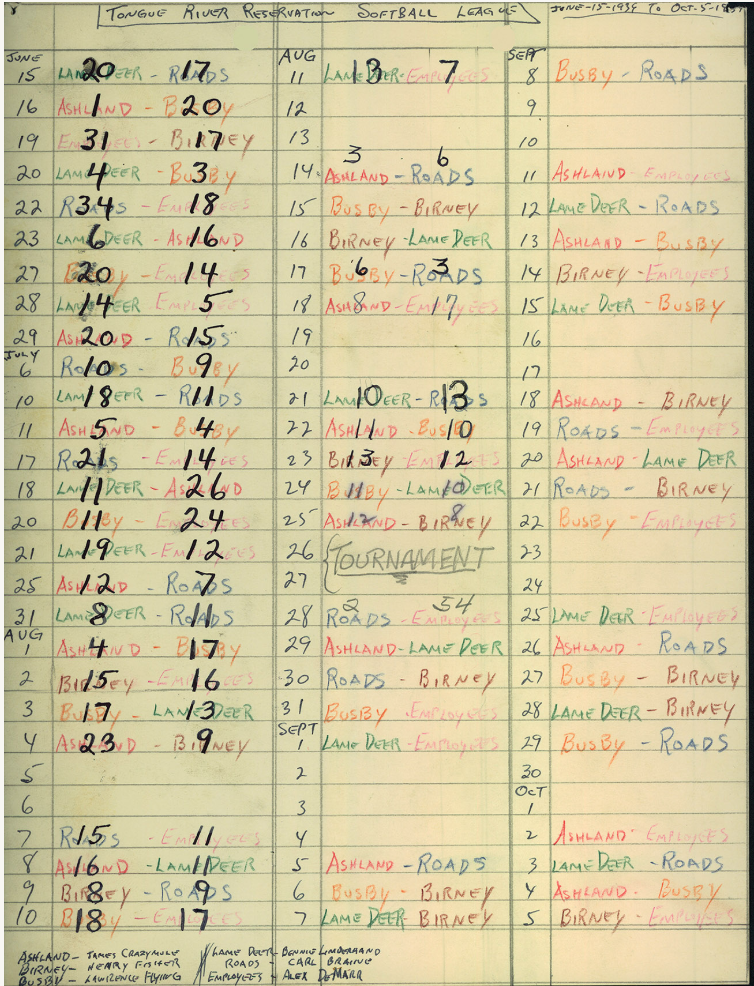 TONGUE RIVER RESERVATION SOFTBALL LEAGUE
JUNE-15-1934 TO OCT-5-1937
JUNE
15 LAME DEER - ROADS 20 17
16 ASHLAND - BUSBY 1 20
19 EMPLOYEES - BIRNEY 31 17
20 LAME DEER - BUSBY 4 3
22 ROADS - EMPLOYEES 34 18
23 LAME DEER - ASHLAND 6 16
27 BUSBY - EMPLOYEES 20 14
28 LAME DEER EMPLOYEES 14 5
29 ASHLAND - ROADS 20 15
JULY
6 ROADS - BUSBY 10 9
10 LAME DEER - ROADS 18 11
11 ASHLAND - BUSBY 5 4
17 ROADS - EMPLOYEES 21 14
18 LAME DEER - ASHLAND 11 26
20 BUSBY - EMPLOYEES 11 24
21 LAME DEER - EMPLOYEES 19 12
25 ASHLAND - ROADS 12 7
31 LAME DEER - ROADS 8 11
AUG
1 ASHLAND - BUSBY 4 17
2 BIRNEY - EMPLOYEES 15 16
3 BUSBY - LAME DEER 17 13
4 ASHLAND - BIRNEY 23 9
5
6
7 ROADS - EMPLOYEES 15 11
8 ASHLAND - LAME DEER 16 11
9 BIRNEY - ROADS 8 9
10 BUSBY - EMPLOYEES 18 17
AUG
11 LAME DEER - EMPLOYEES 13 7
12
13
14 ASHLAND - ROADS 3 6
15 BUSBY - BIRNEY
16 BIRNEY - LAME DEER
17 BUSBY - ROADS 6 3
18 ASHLAND - EMPLOYEES 8 17
19
20
21 LAME DEER - ROADS 10 13
22 ASHLAND - BUSBY 11 10
23 BIRNEY - EMPLOYEES 13 12
24 BUSBY - LAME DEER 11 10
25 ASHLAND - BIRNEY 12 8
26 TOURNAMENT
27
28 ROADS - EMPLOYEES 2 54
29 ASHLAND - LAME DEER
30 ROADS - BIRNEY
31 BUSBY EMPLOYEES
SEPT
1 LAME DEER - EMPLOYEES
2
3
4
5 ASHLAND - ROADS
6 BUSBY - BIRNEY
7 LAME DEER - BIRNEY
SEPT
8 BUSBY - ROADS
9
10
11 ASHLAND - EMPLOYEES
12 LAME DEER - ROADS
13 ASHLAND - BUSBY
14 BIRNEY - EMPLOYEES
15 LAME DEER - BUSBY
16
17
18 ASHLAND - BIRNEY
19 ROADS - EMPLOYEES
20 ASHLAND - LAME DEER
21 ROADS - BIRNEY
22 BUSBY - EMPLOYEES
23
24
25 LAME DEER EMPLOYEES
26 ASHLAND - ROADS
27 BUSBY - BIRNEY
28 LAME DEER - BIRNEY
29 BUSBY - ROADS
30
OCT
1
2 ASHLAND - EMPLOYEES
3 LAME DEER - ROADS
4 ASHLAND - BUSBY
5 BIRNEY - EMPLOYEES
ASHLAND - JAMES CRAZYMULE
BIRNEY - HENRY FISHER
BUSBY - LAWRENCE FLYING
LAME DEER - BENNIE LIMBERHAND
ROADS - CARL BRAINE
EMPLOYEES - ALEX DEMARR